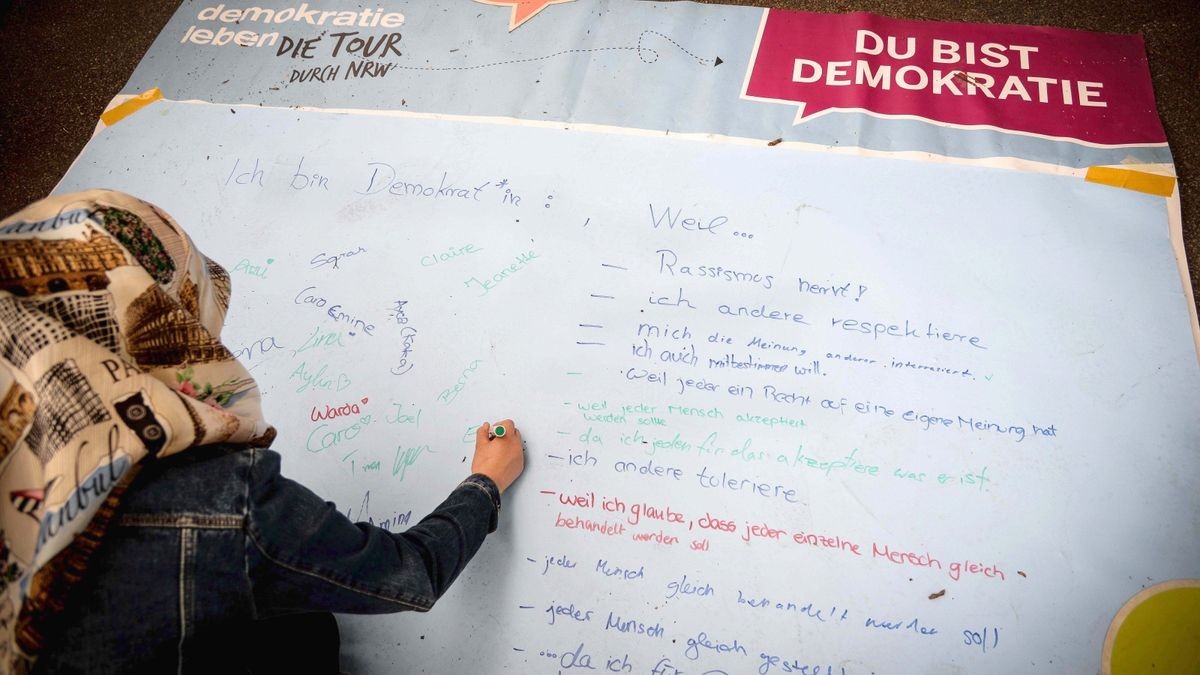 demokratie
leben
DIE TOUR
DURCH NRW
DU BIST
DEMOKRATIE
Ich bin Demokrat*in: , Weil...
Sarah
Claire
Jeanette
Caro
Emine
Aylin
Berna
Warda
Caro
Joel
Timon
Amina
– Rassismus nervt!
– ich andere respektiere
– mich die Meinung anderer interresiert.
– ich auch mitbestimmen will.
– weil jeder ein Recht auf eine eigene Meinung hat
– weil jeder Mensch akzeptiert
werden sollte
– da ich jeden für das akzeptiere was er ist.
– ich andere toleriere
– weil ich glaube, dass jeder einzelne Mensch gleich
behandelt werden soll
– jeder Mensch gleich behandelt werden soll
– jeder Mensch gleich
– ...da ich für